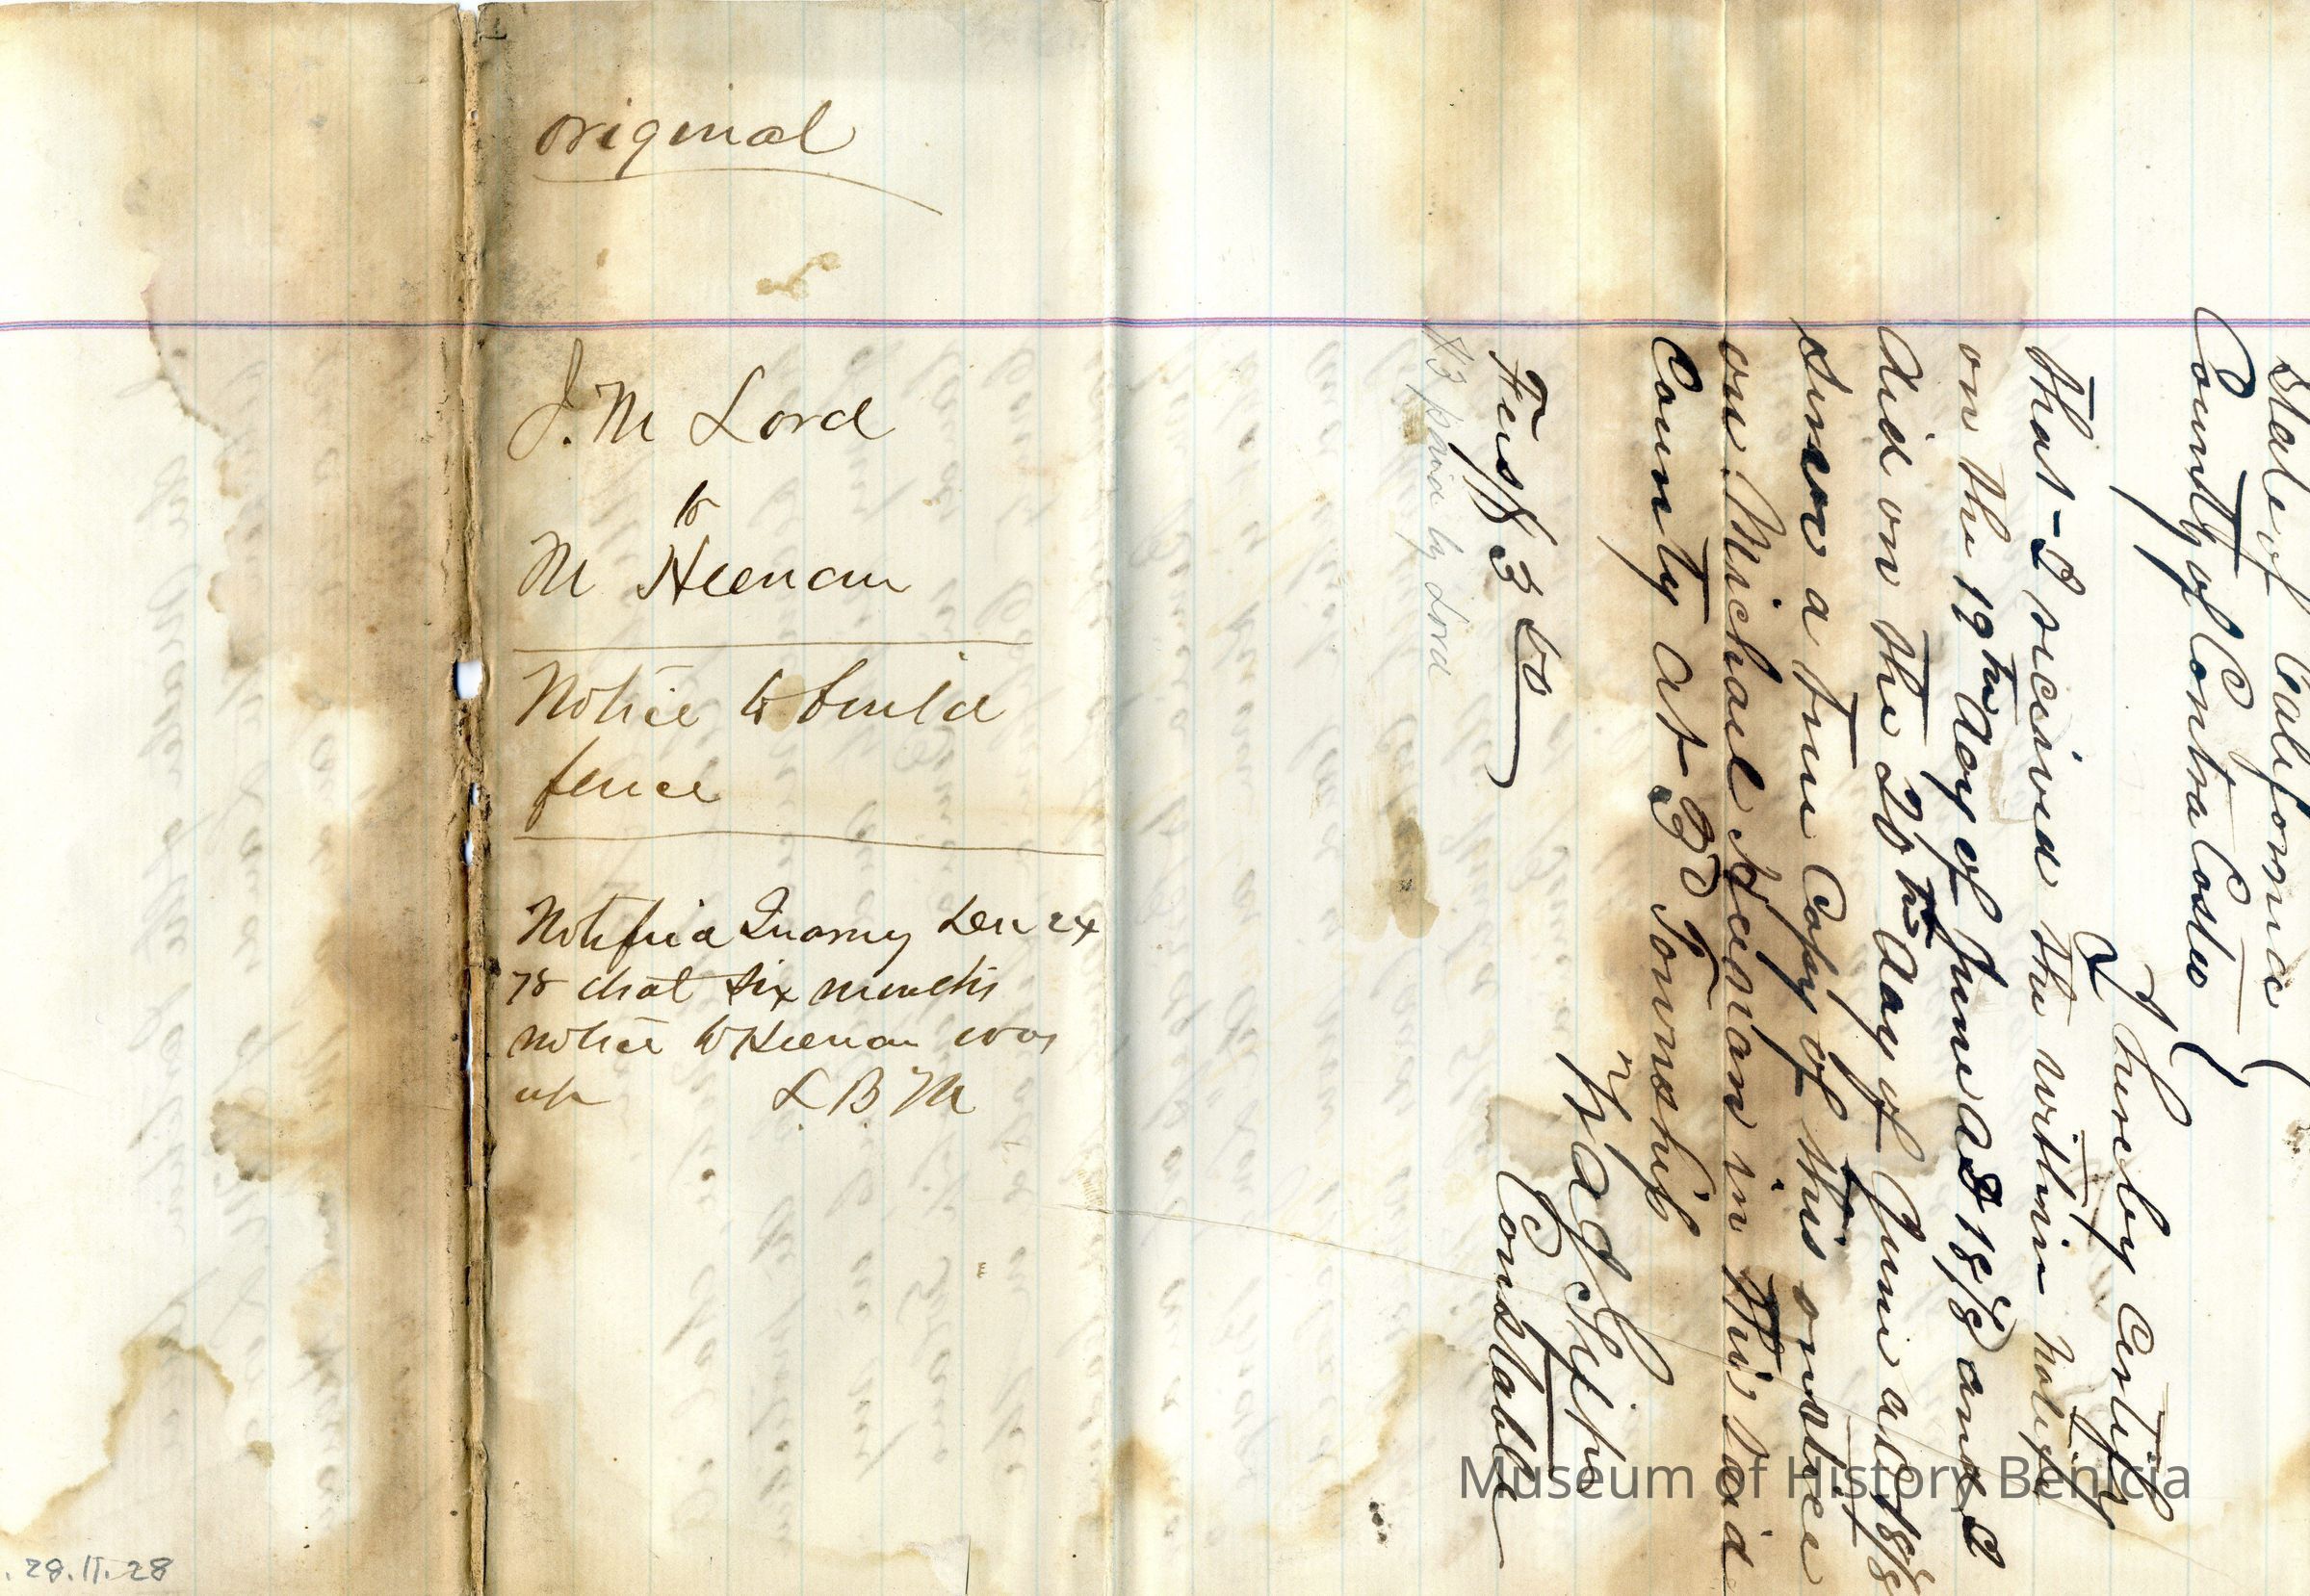 original
J. M Lord
to
M Heenan
Notice to build
fence
Notified Quarry Dec 24
78 that six months
notice to Heenan was
up L. B. M
State of California
County of Contra Costa
I hereby Certify
that I received the within notice
on the 19th day of June AD 1878 and
did on the 20th day of June AD 1878
serve a true Copy of this notice
on Michael Heenan in this said
County at 3d Township
Constable
Fees $3 00
$3 paid by Lord
Museum of History Benicia
.28.11.28